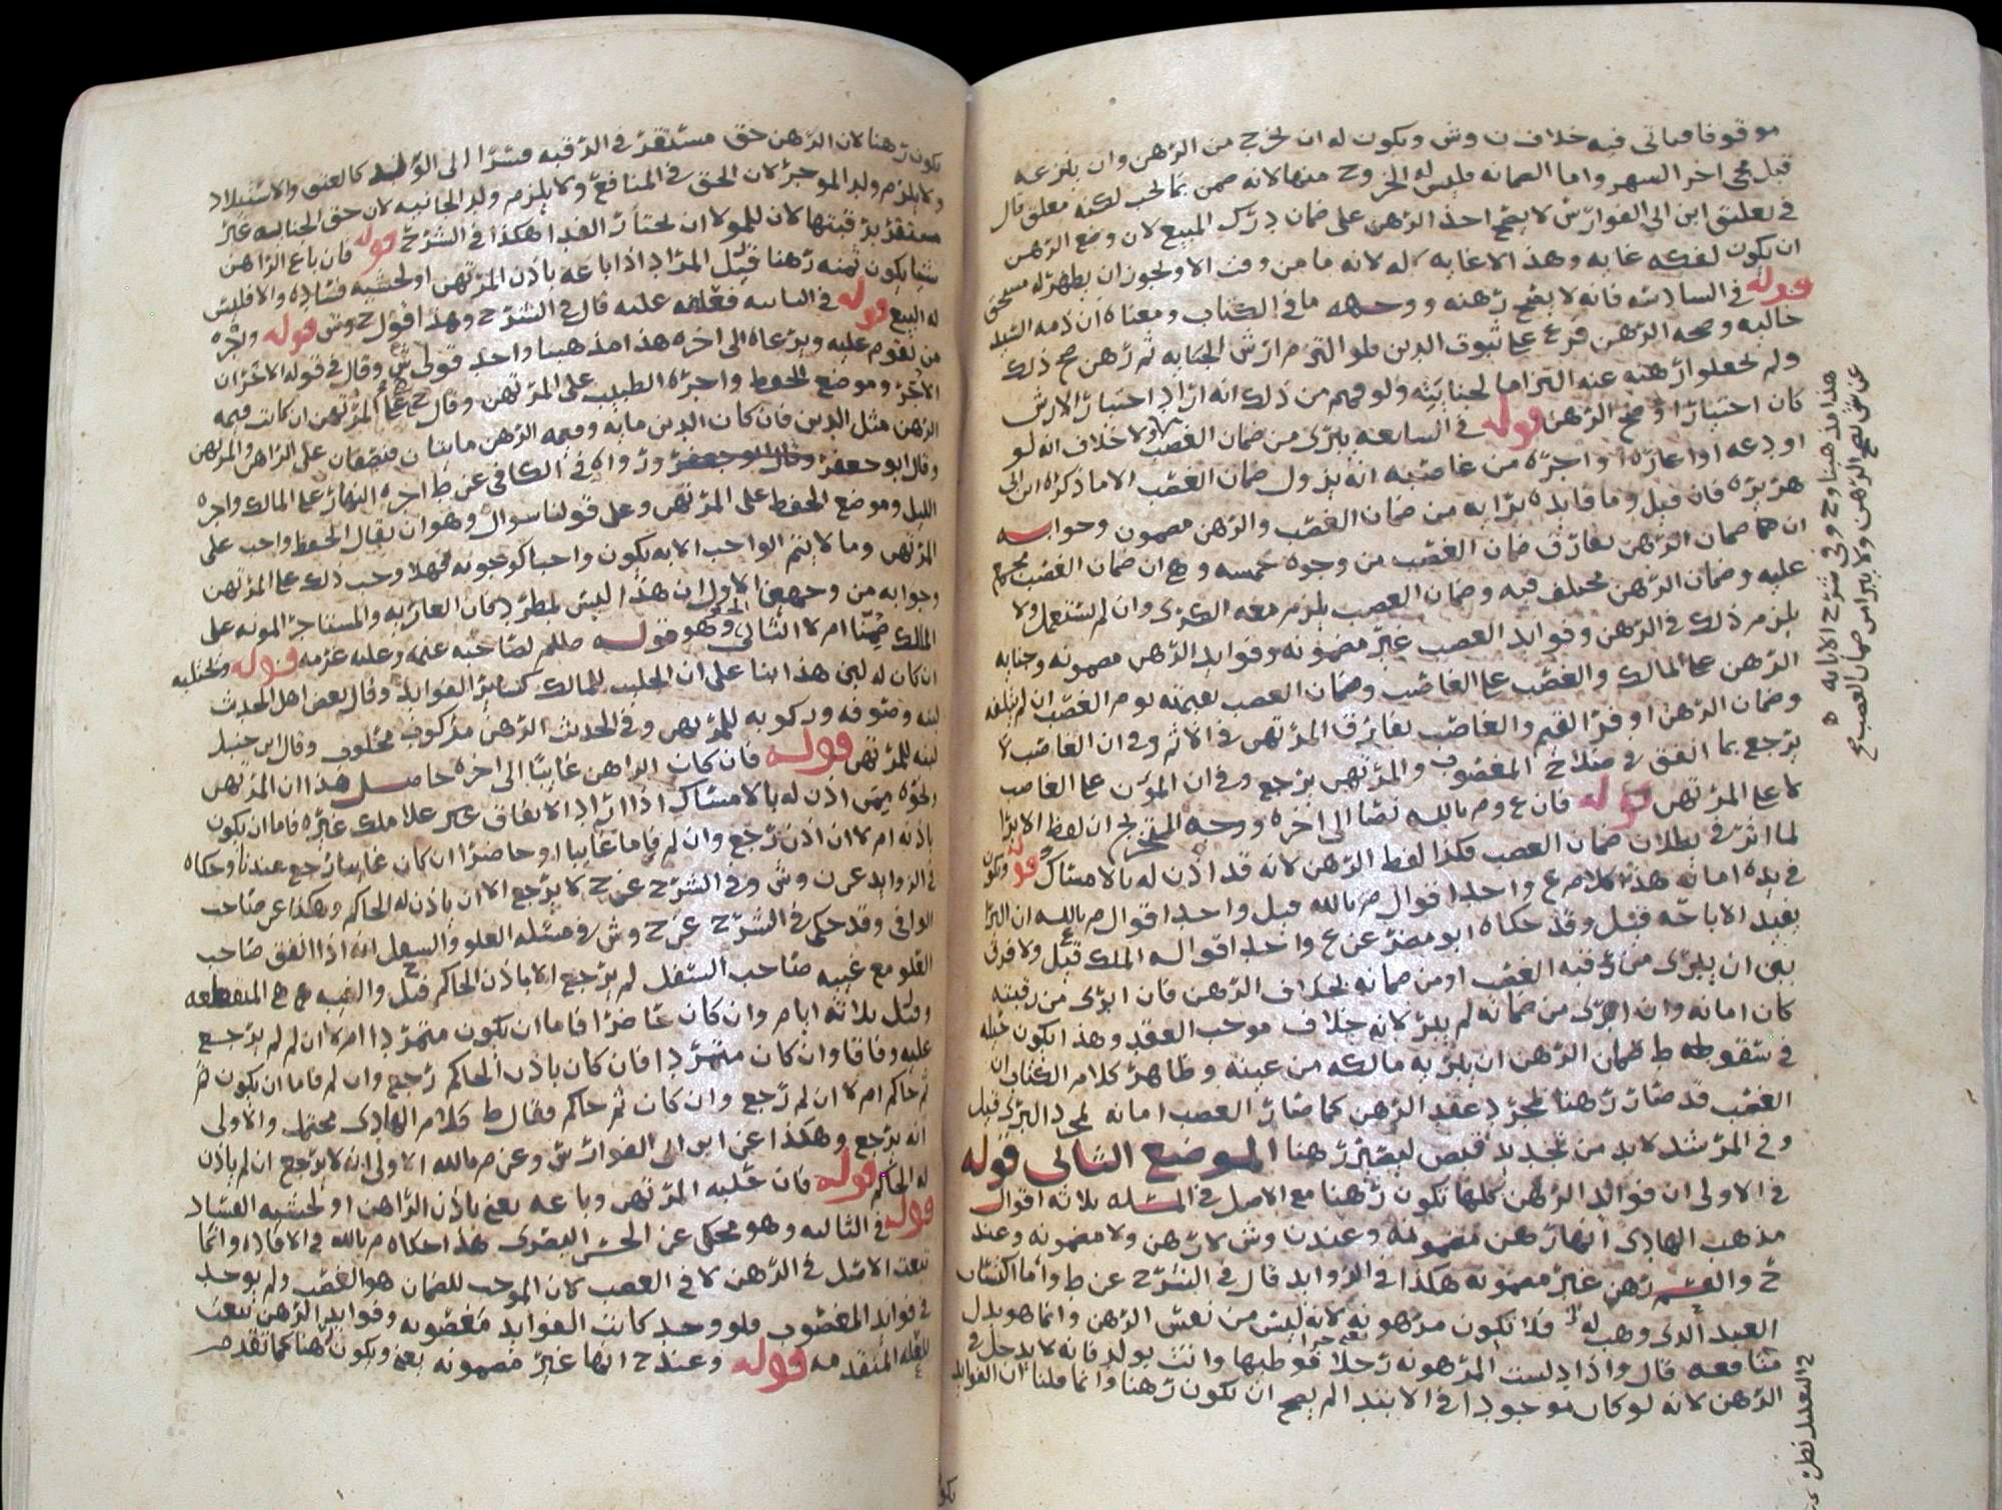 موقوفا فياتي فيه خلاف ن وش ويكون له ان يخرج من الرهن وان ينزعه
قبل مجي اخر الشهر واما الضمانه فليس له الخروج منها لانه ضمن بما يجب لكنه معلق قال
في تعليق ابن ابي الفوارس لا يصح اخذ الرهن على ضمان درك المبيع لان وضع الرهن
ان يكون لفكه غايه وهذا لا غايه له لانه ما من وقت الا ويجوز ان يظهر له مستحق
قوله في السادسه فانه لا يصح رهنه ووجهه ما في الكتاب ومعناه ان ذمه السيد
خاليه وصحه الرهن فرع على ثبوت الدين فلو التزم ارش الجنايه ثم رهن صح ذلك
ولم يجعلوا رهنه عنه التزاما لجنايته ولو فهم من ذلك انه اراد اختيار الارش
كان اختيارا وصح الرهن قوله في السابعه يبرى من ضمان الغصب ولا خلاف انه لو
اودعه او اعاره او اجره من غاصبه انه يزول ضمان الغصب الا ما ذكره ابن ابي
هريره فان قيل وما فايده برايه من ضمان الغصب والرهن مضمون وجوابه
ان ضمان الرهن يفارق ضمان الغصب من وجوه خمسه وهي ان ضمان الغصب مجمع
عليه وضمان الرهن مختلف فيه وضمان الغصب يلزم معه الكرى وان لم يستعمل ولا
يلزم ذلك في الرهن وفوايد الغصب غير مضمونه وفوايد الرهن مضمونه وجنايه
الرهن على المالك والغصب على الغاصب وضمان الغصب بقيمته يوم الغصب ان لم يتلفه
وضمان الرهن اوفر القيم والغاصب يفارق المرتهن في الاثم وفي ان الغاصب لا
يرجع بما انفق في صلاح المغصوب والمرتهن يرجع وفي ان المؤن على الغاصب
لا على المرتهن قوله فان ع وم بالله نصا الى اخره ووجه التخريج ان لفظ الابرا
لما اثر في بطلان ضمان الغصب فكذا لفظ الرهن لانه قد اذن له بالامساك قوله ويكون
في يده امانه هذا كلام ع واحد اقوال م بالله قيل واحد اقوال م بالله ان البرا
يفيد الاباحه قيل وقد حكاه ابو مضر عن ع واحد اقواله الملك قيل ولا فرق
بين ان يبرى من رقبه الغصب او من ضمانه بخلاف الرهن فان ابرى من رقبته
كان امانه وان ابرى من ضمانه لم يبر لانه خلاف موجب العقد وهذا يكون حيله
في سقوط ضمان الرهن ان يبريه مالكه من عينه وظاهر كلام الكتاب ان
الغصب قد صار رهنا بمجرد عقد الرهن كما صار الغصب امانه بمجرد البرى قيل
وفي المرشد لا بد من تجديد قبض ليصير رهنا الموضع الثاني قوله
في الاولى ان فوائد الرهن كلها تكون رهنا مع الاصل في المسله ثلاثه اقوال
مذهب الهادي انها رهن مضمونه وعند ن وش لا رهن ولا مضمونه وعند
ح والقسم رهن غير مضمونه هكذا في الزوايد قال في الشرح عن ط واما اكتساب
العبد الذي وهب له فلا تكون مرهونه لانه ليس من نفس الرهن وانما هو بدل
منافعه قال واذا دلست المرهونه رجلا فوطيها واتت بولد فانه لا يدخل في
الرهن لانه لو كان موجودا في الابتدا لم يصح ان يكون رهنا وانما قلنا ان الفوايد
هذا مذهبنا وح وفي شرح الابانه
عن ش يصح الرهن ولا يبرا من ضمان الغصب
يكون رهنا لان الرهن حق مستقر في الرقبه فسرا الى الولد كالعتق والاستيلاد
ولا يلزم ولد الموجر لان الحق في المنافع ولا يلزم ولد الجانيه لان حق الجنايه غير
مستقر برقبتها لان للمولا ان يختار الفدا هكذا في الشرح قوله فان باع الراهن
شيا يكون ثمنه رهنا قيل المراد اذا باعه باذن المرتهن او لخشيه فساده والا فليس
له البيع قوله في الثانيه فعلفه عليه قال في الشرح وهذا قول ح وش قوله واجره
من يقوم عليه ويرعاه الى اخره هذا مذهبنا واحد قولي ش وقال في قوله الاخر ان
الاجره وموضع الحفظ واجره الطبيب على المرتهن وقال ح على المرتهن ان كانت قيمه
الرهن مثل الدين فان كان الدين مايه وقيمه الرهن مايتان فنصفان على الراهن والمرتهن
وقال ابو جعفر ورواه في الكافي عن ط اجره النهار على المالك واجره
الليل وموضع الحفظ على المرتهن وعلى قولنا سوال وهو ان يقال الحفظ واجب على
المرتهن وما لا يتم الواجب الا به يكون واجبا كوجوبه فهلا وجب ذلك على المرتهن
وجوابه من وجهين الاول ان هذا ليس بمطرد فان العاريه والمستاجر المونه على
المالك ضمنا ام لا الثاني وهو قوله صللم لصاحبه غنمه وعليه غرمه قوله ويحتلبه
ان كان له لبن هذا بنا على ان الحليب للمالك كساير الفوايد وقال بعض اهل الحديث
لبنه وصوفه وركوبه للمرتهن وفي الحديث الرهن مركوب محلوب وقال ابن حنبل
لبنه للمرتهن قوله فان كان الراهن غايبا الى اخره حاصل هذا ان المرتهن
ونحوه ممن اذن له بالامساك اذا اراد الانفاق على ملك غيره فاما ان يكون
باذنه ام لا ان اذن رجع وان لم فاما غايبا او حاضرا ان كان غايبا رجع عندنا وحكاه
في الزوايد عن ن وش وفي الشرح عن ح لا يرجع الا ان ياذن له الحاكم وهكذا عن صاحب
الوافي وقد حكى في الشرح عن ح وش في مسله العلو والسفل انه اذا انفق صاحب
العلو مع غيبه صاحب السفل لم يرجع الا باذن الحاكم قيل والغيبه هي المنقطعه
وقيل ثلاثه ايام وان كان حاضرا فاما ان يكون متمردا ام لا ان لم لم يرجع
عليه وفاقا وان كان متمردا فان كان باذن الحاكم رجع وان لم فاما ان يكون ثم
ثم حاكم ام لا ان لم رجع وان كان ثم حاكم فقال ط كلام الهادي محتمل والاولى
انه يرجع وهكذا عن ابن ابي الفوارس وعن م بالله الاولى انه لا يرجع ان لم ياذن
له الحاكم قوله فان غلبه المرتهن وباعه يعني باذن الراهن او لخشيه الفساد
قوله في الثالثه وهو محكي عن الحسن البصري هذا حكاه م بالله في الافاده وانما
تبعت الاصل في الرهن لا في الغصب لان الموجب للضمان هو الغصب ولم يوجد
في فوايد المغصوب فلو وجد كانت الفوايد مغصوبه وفوايد الرهن تبعت
للعله المتقدمه قوله وعند ح انها غير مضمونه يعني ويكون رهنا كما تقدم